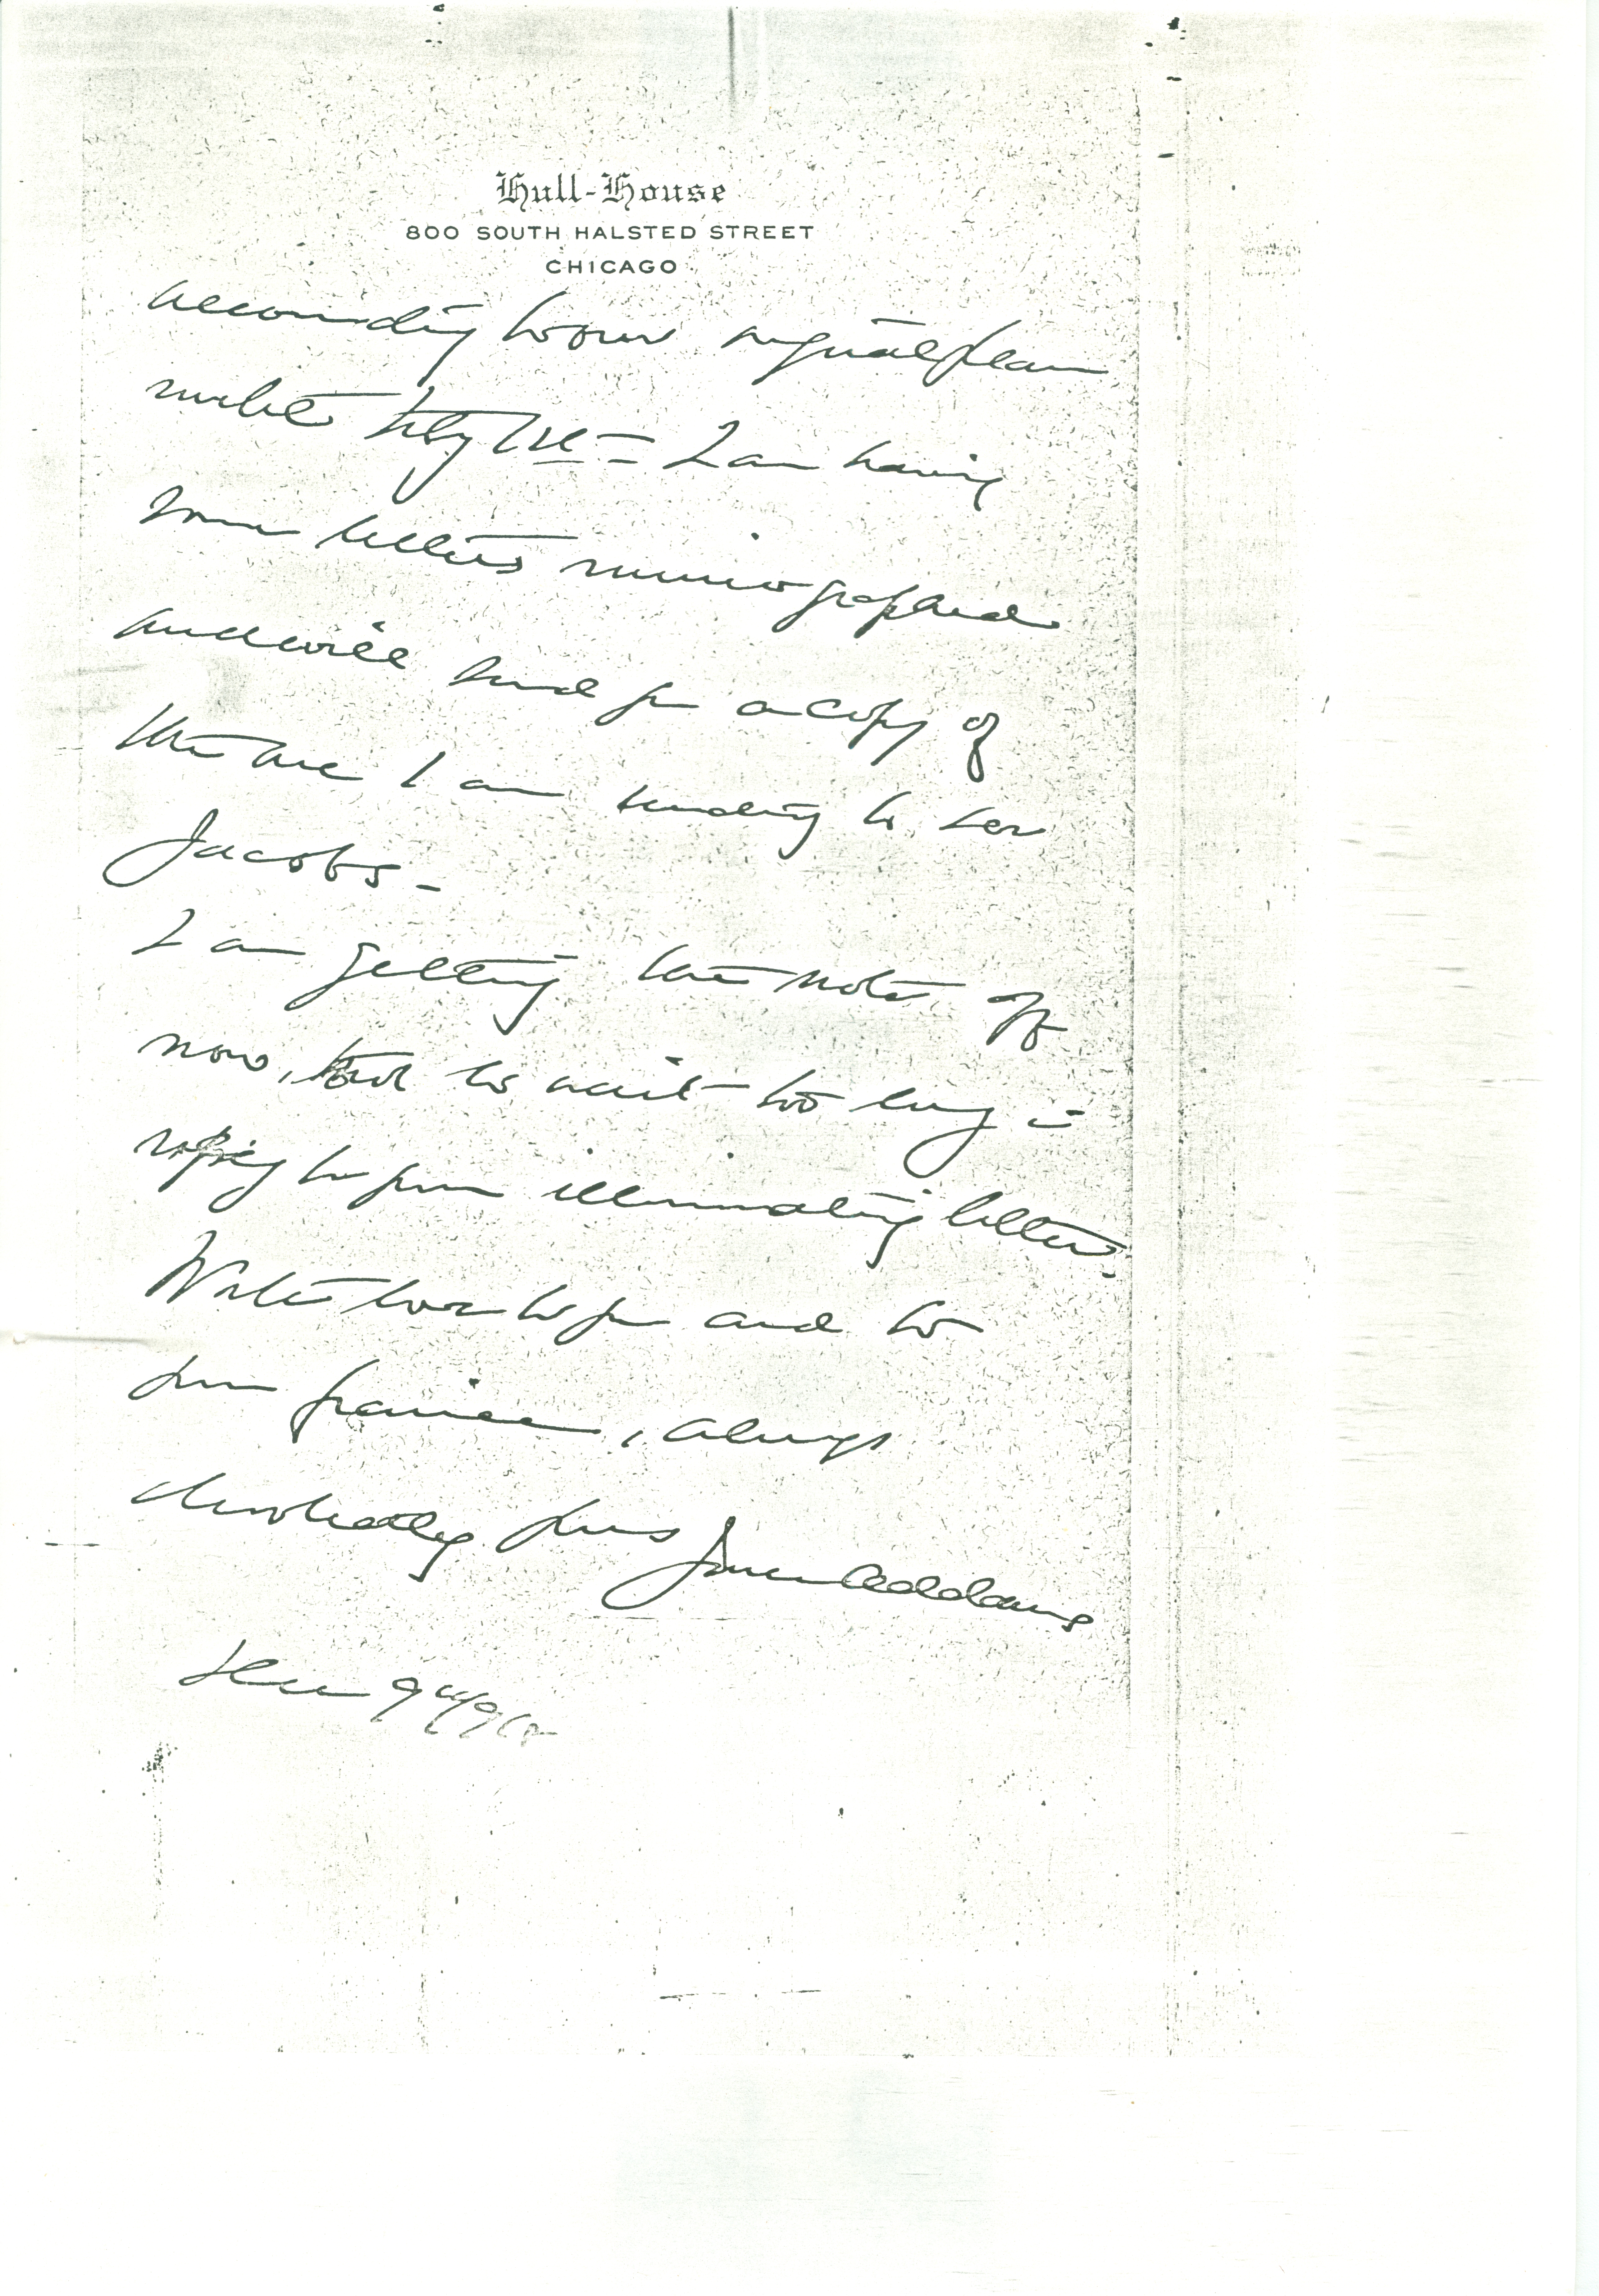 Hull-House
800 SOUTH HALSTED STREET
CHICAGO
according to our original plan
until July 1st = I am having
some letters mimeographed
and will send you a copy of
the one I am sending to Dr
Jacobs -
I am getting this note off
now, not to wait too long in
replying to your illuminating letters.
With love to you and to
your fiancée, always
devotedly yours Jane Addams